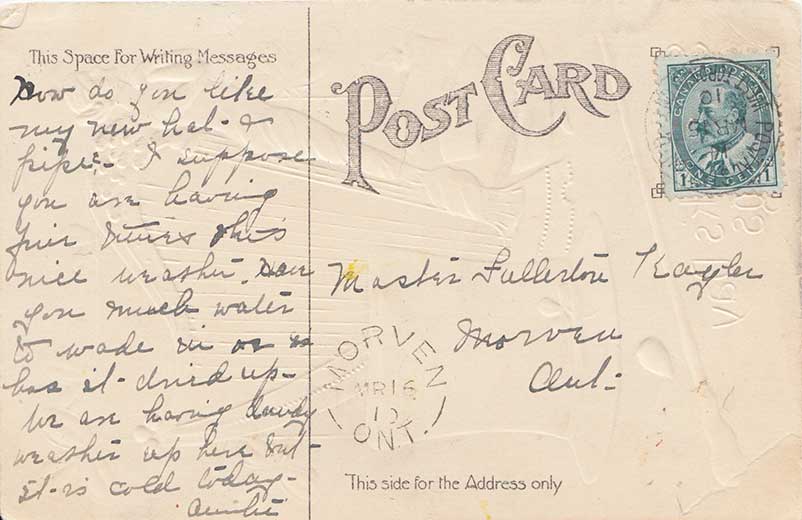 This Space For Writing Messages
How do you like
my new hat &
pipe. I suppose
you are having
fine times this
nice weather. Have
you much water
to wade in or
has it dried up -
We are having dandy
weather up here but
it is cold today -
Auntie
POST CARD
CANADA POSTAGE
ONE CENT
1 1
Master Fullerton
Morven
Ont.
MORVEN
MR 16
10
ONT.
This side for the Address only